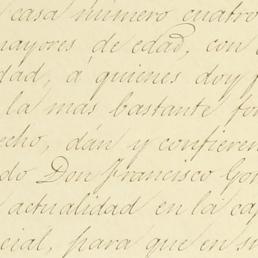 casa número cuatro
mayores de edad, con
dad, á quienes doy f
la mas bastante for
echo, dán y confieren
do Don Francisco Gon
actualidad en la cap
cial, para que en su